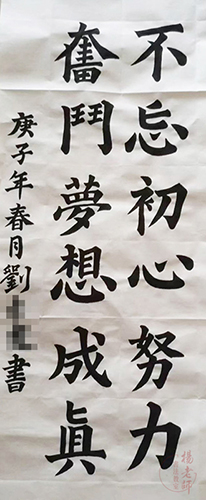 不忘初心努力
奮鬥夢想成真
庚子年春月劉書
楊老師